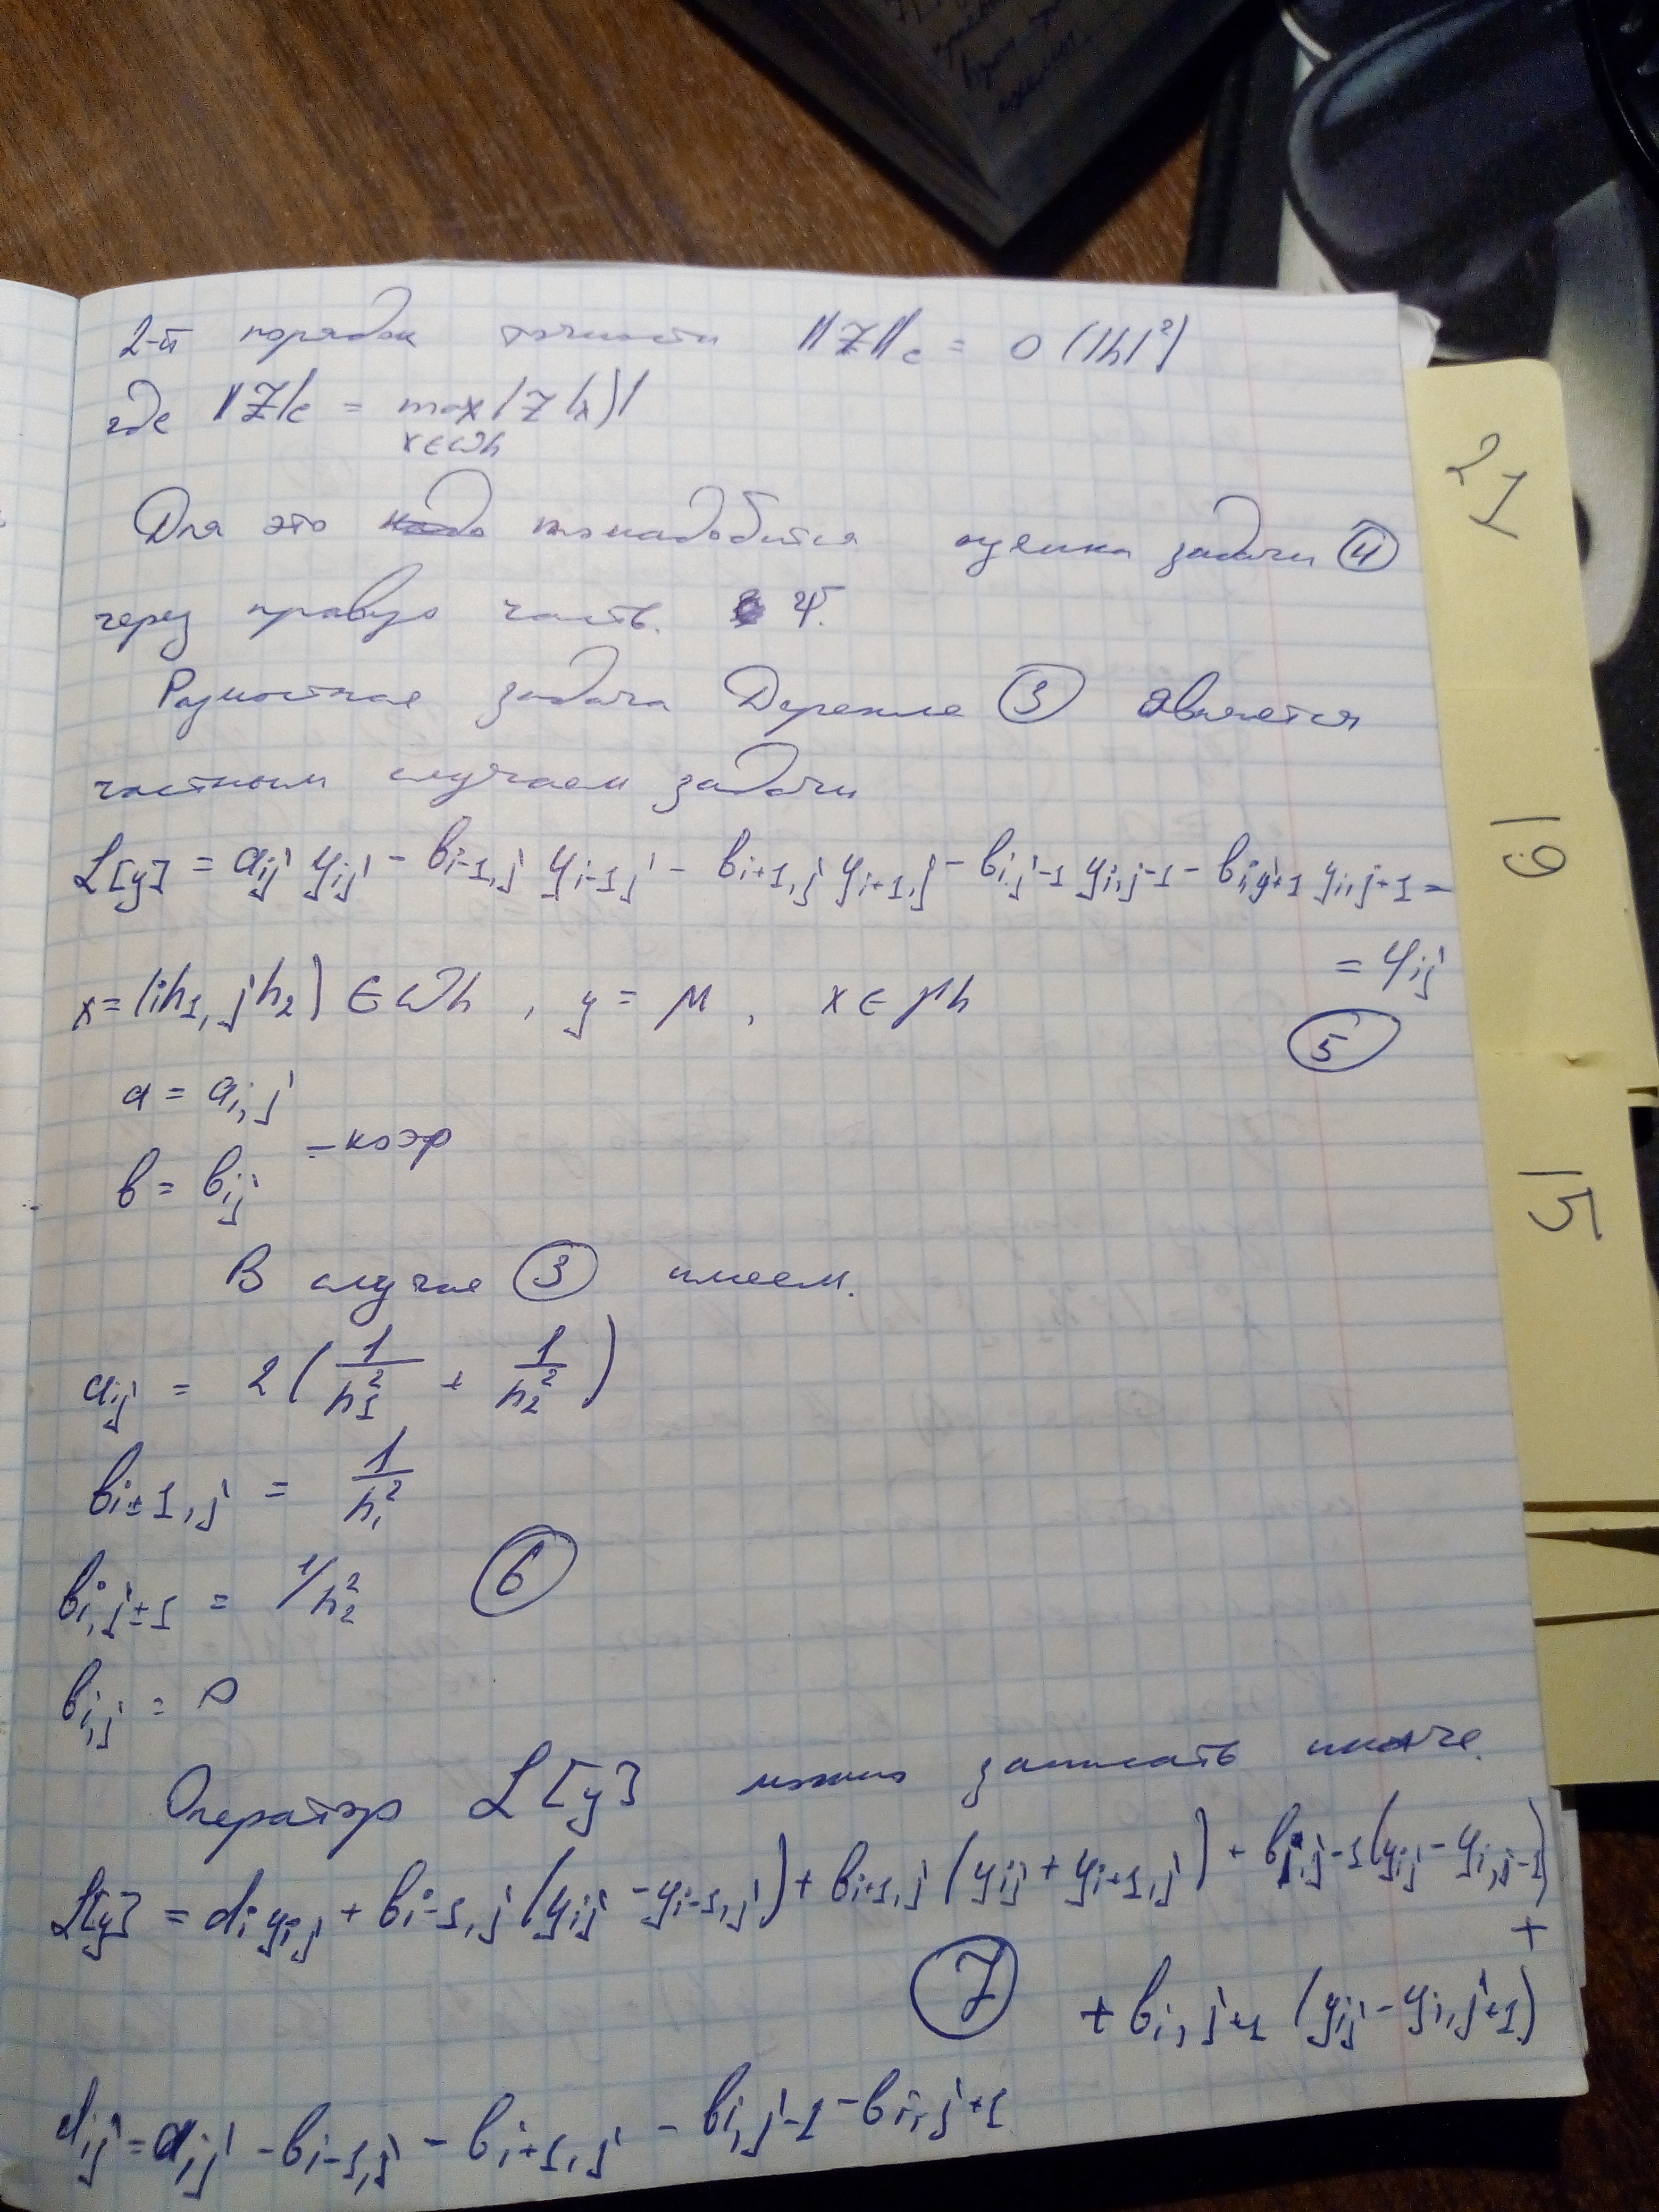 2-й порядок точности ||Z||c = O(|h|²)
где ||Z||c = max |Z(x)|
x∈ωh
Для это понадобится оценка задачи (4)
через правую часть. Ψ.
Разностная задача Дирехле (3) является
частным случаем задачи
ℒ[y] = aij yij - bi-1,j yi-1,j - bi+1,j yi+1,j - bi,j-1 yi,j-1 - bi,j+1 yi,j+1 =
= φij
x = (ih₁, jh₂) ∈ ωh , y = μ , x ∈ γh
(5)
a = ai,j
- коэф
b = bij
В случае (3) имеем.
aij = 2(1/h₁² + 1/h₂²)
bi±1,j = 1/h₁²
bi,j±1 = 1/h₂²
(6)
bi,j = 0
Оператор ℒ[y] можно записать иначе.
ℒ[y] = di yi,j + bi-1,j (yij - yi-1,j) + bi+1,j (yij + yi+1,j) + bi,j-1 (yij - yi,j-1) +
(7) + bi,j+1 (yij - yi,j+1)
dij = aij - bi-1,j - bi+1,j - bi,j-1 - bi,j+1
21
19
15